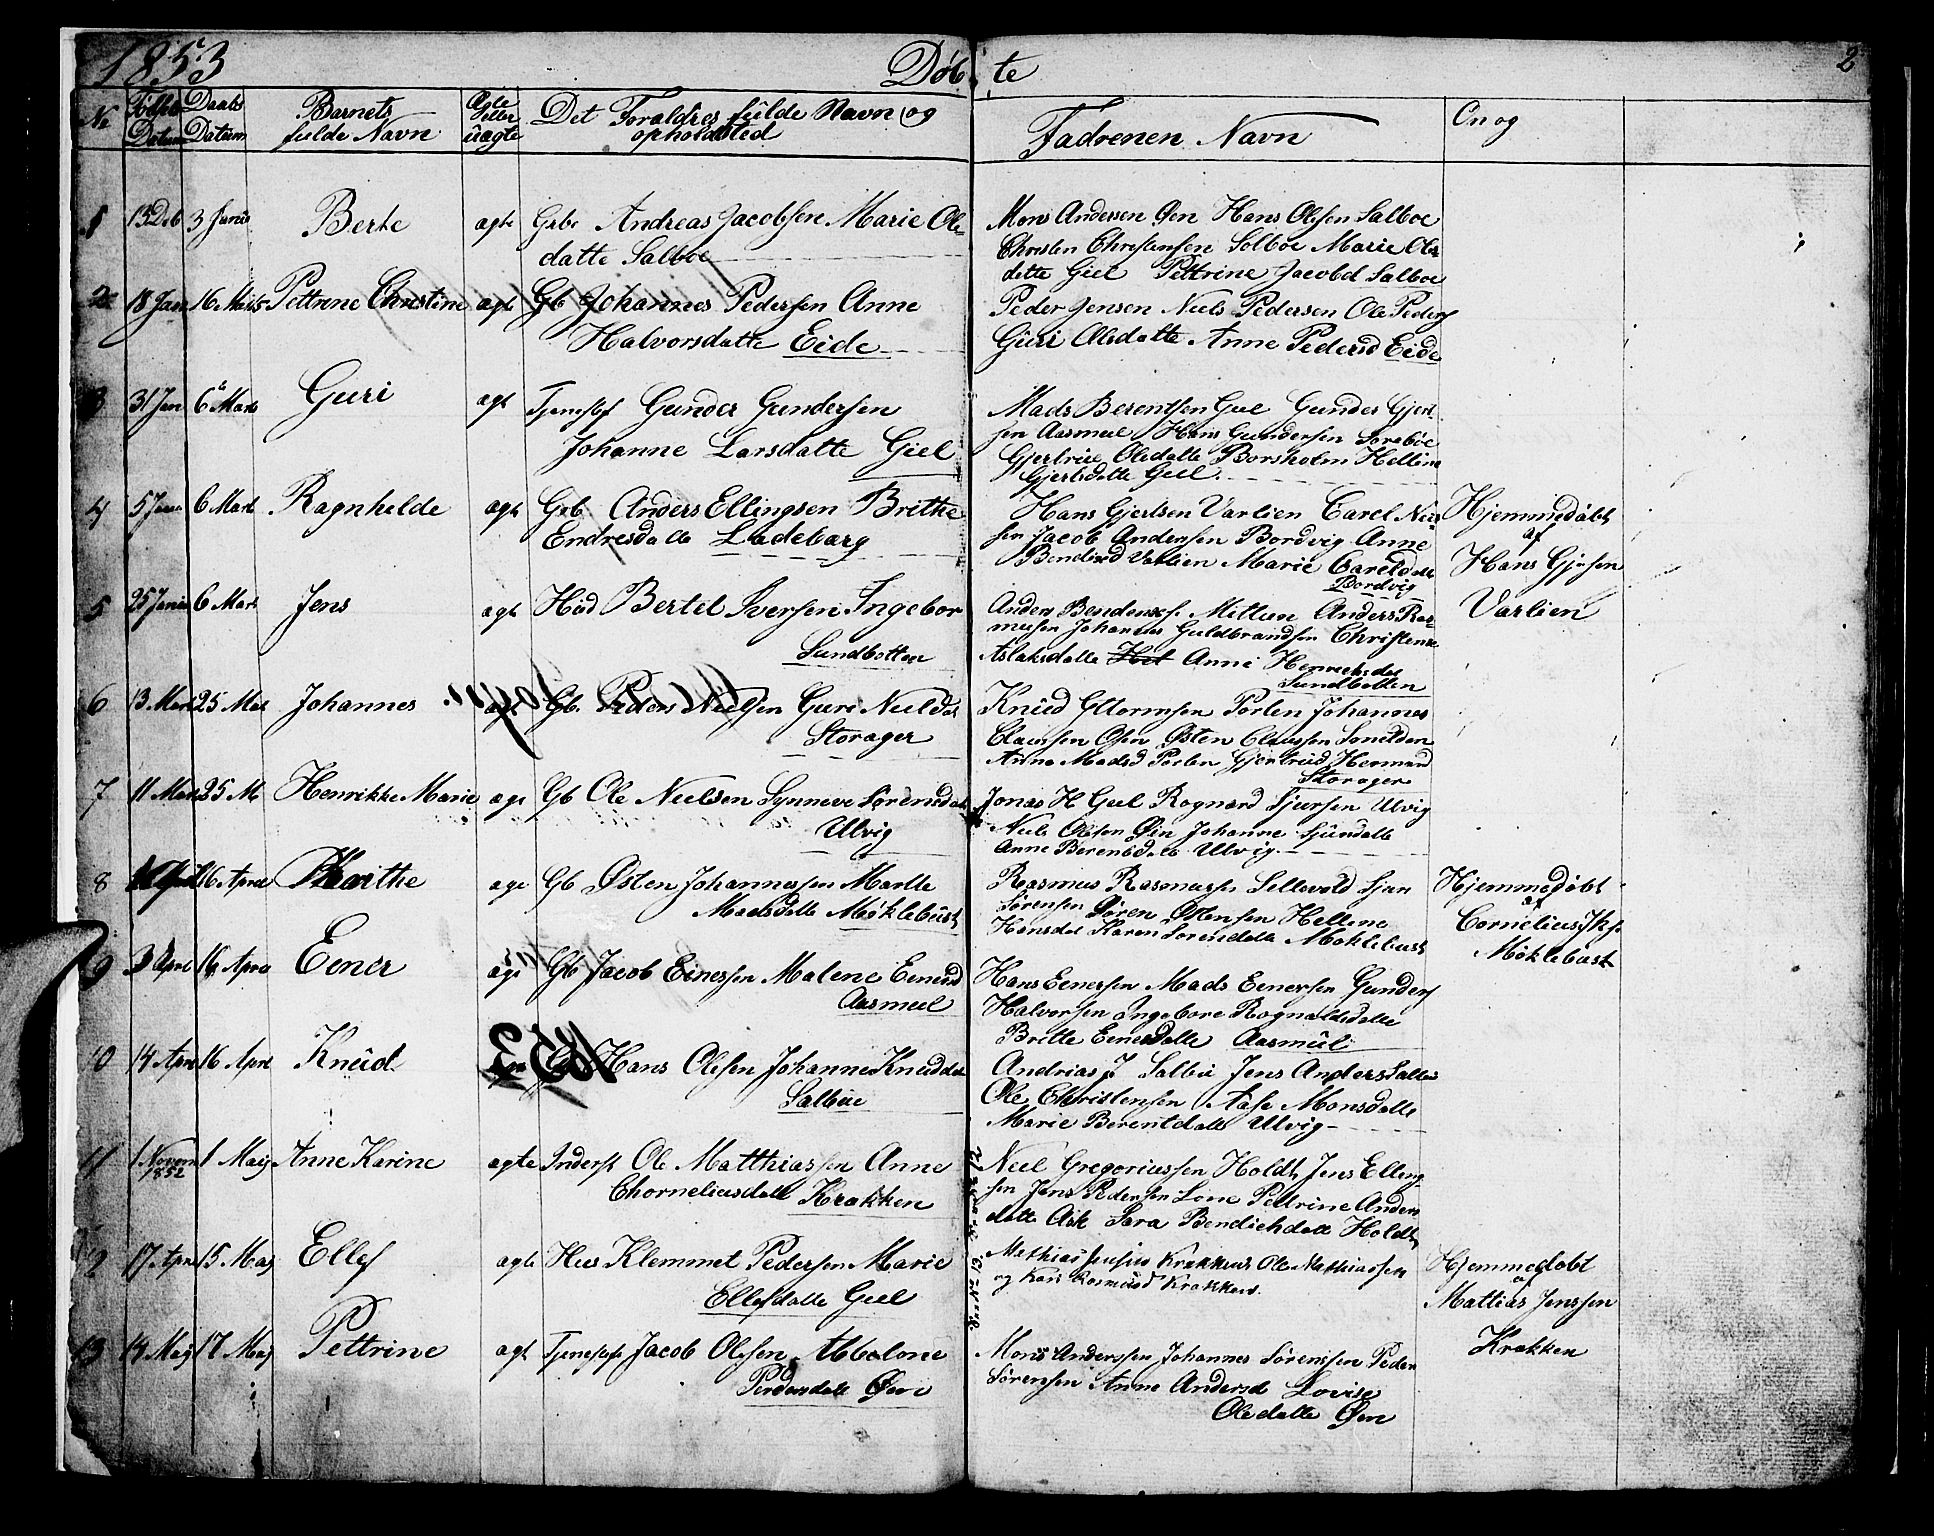 1853 Døb te 2
No Fødsels Datum Daabs Datum Barnets fulde Navn Ægte eller uægte Det Foraldres fulde Navn og opholdsted Fadrenen Navn On og
1 13 Deb 3 Janu Berte agte Grbr Andreas Jacobsen Marie Ole-
datte Salboe
Mons Andersen Øen Hans Olesen Salboe
Christen Christensen Solboe Marie Oles
datte Giel Pettrine Jacobd Salboe
2 18 Jan 16 Marts Pettrine Christine agte Gb Johannes Pedersen Anne
Halvorsdatte Eide
Peder Jensen Niels Pedersen Ole Peders
Guri Olesdatte Anne Pedersd Eide
3 31 Jan 6 Mart Guri agt Tjenestf Gunder Gundersen
Johanne Larsdatte Giel
Mads Berentsen Giel Gunder Gjert
sen Aasmul Hans Gundersen Sorebøe
Gjertrue Oledatte Borsholm Helline
Gjertsdatte Giel
4 5 Janu 6 Mart Ragnhelde agte Grb Anders Ellingsen Brithe
Endresdatte Ladeberg
Hans Gjertsen Varlien Carel Niel
sen Jacob Andersen Bordvig Anne
Bendixd Varlien Marie Careldatte
Bordvig
Hjemmedøbt
af
Hans Gjesen
Varlien
5 25 Janu 6 Mart Jens agt Hud Bertel Iversen Ingebor
Sundbotten
Anders Mittun Anders Ras-
musen Johannes Guldbrandsen Christense
Aslaksdatte Anne Henrichsdat
Sundbotten
6 13 Mart 25 Mar Johannes agt Gb. Peders Nielsen Guri Nielsdat
Storager
Knud Gttormsen Porten Johannes
Claussen Øsen Østen Claussen Sonilden
Anna Madsd Porten Gjertrud Hermand
Storager
7 11 Mart 25 M Henrikke Marie agt Gb Ole Nielsen Synneve Sørensdat
Ulvig
Jonas H Giel Rognard Sjursen Ulvig
Niels Olesen Øen Johanne Sjurdatte
Anne Berentdatte Ulvig
8 16 April agt Gb Østen Johannessen Marthe
Madsdatte Møklebust
Rasmus Rasmussen Sellevold Sjur
Sørensen Søren Østensen Hellene
Hansdat Karen Sorendatte Moklebust
Hjemmedøbt
af
Cornelius
Møklebust
9 3 April 16 Apra Eener agt Gb Jacob Einessen Malene Eenersd
Aasmul
Hans Eenersen Mads Eenersen Gunder
Halversen Ingebore Rognaldsdatte
Britte Eenersdatte Aasmul
10 14 Apri 16 Apri Knud Hans Olesen Johanne Knuddat
Salboe
Andrias J Salbø Jens Anders Salbø
Ole Christensen Aase Monsdatte
Marie Berentdatte Ulvig
1853
11 1 Novem 1852 1 Maij Anne Karine agte Inderst Ole Matthiassen Anne
Chorneliusdatte Krakken
Niel Gregoriussen Holdt Jens Elling-
sen Jens Pedersen Lone Pettrine Anders
datte Ask Sara Bendichdatte Holdt
12 17 Apri 15 Maij Ellef agte Hus Klemmet Pedersen Marie
Ellefdatte Giel
Mathias Krakkens Ole Mathiassen
og Kari Rasmusd Krakkens.
Hjemmedobt
af
Mattias Jenssen
Krakken
13 14 Maij 17 Maij Pettrine agt Tjenestf Jacob Olesen Abbelone
Pedersdatte Øen
Mons Anderssen Johannes Sørenssen Peder
Sørensen Anne Andersd Lovise
Oledatte Øen